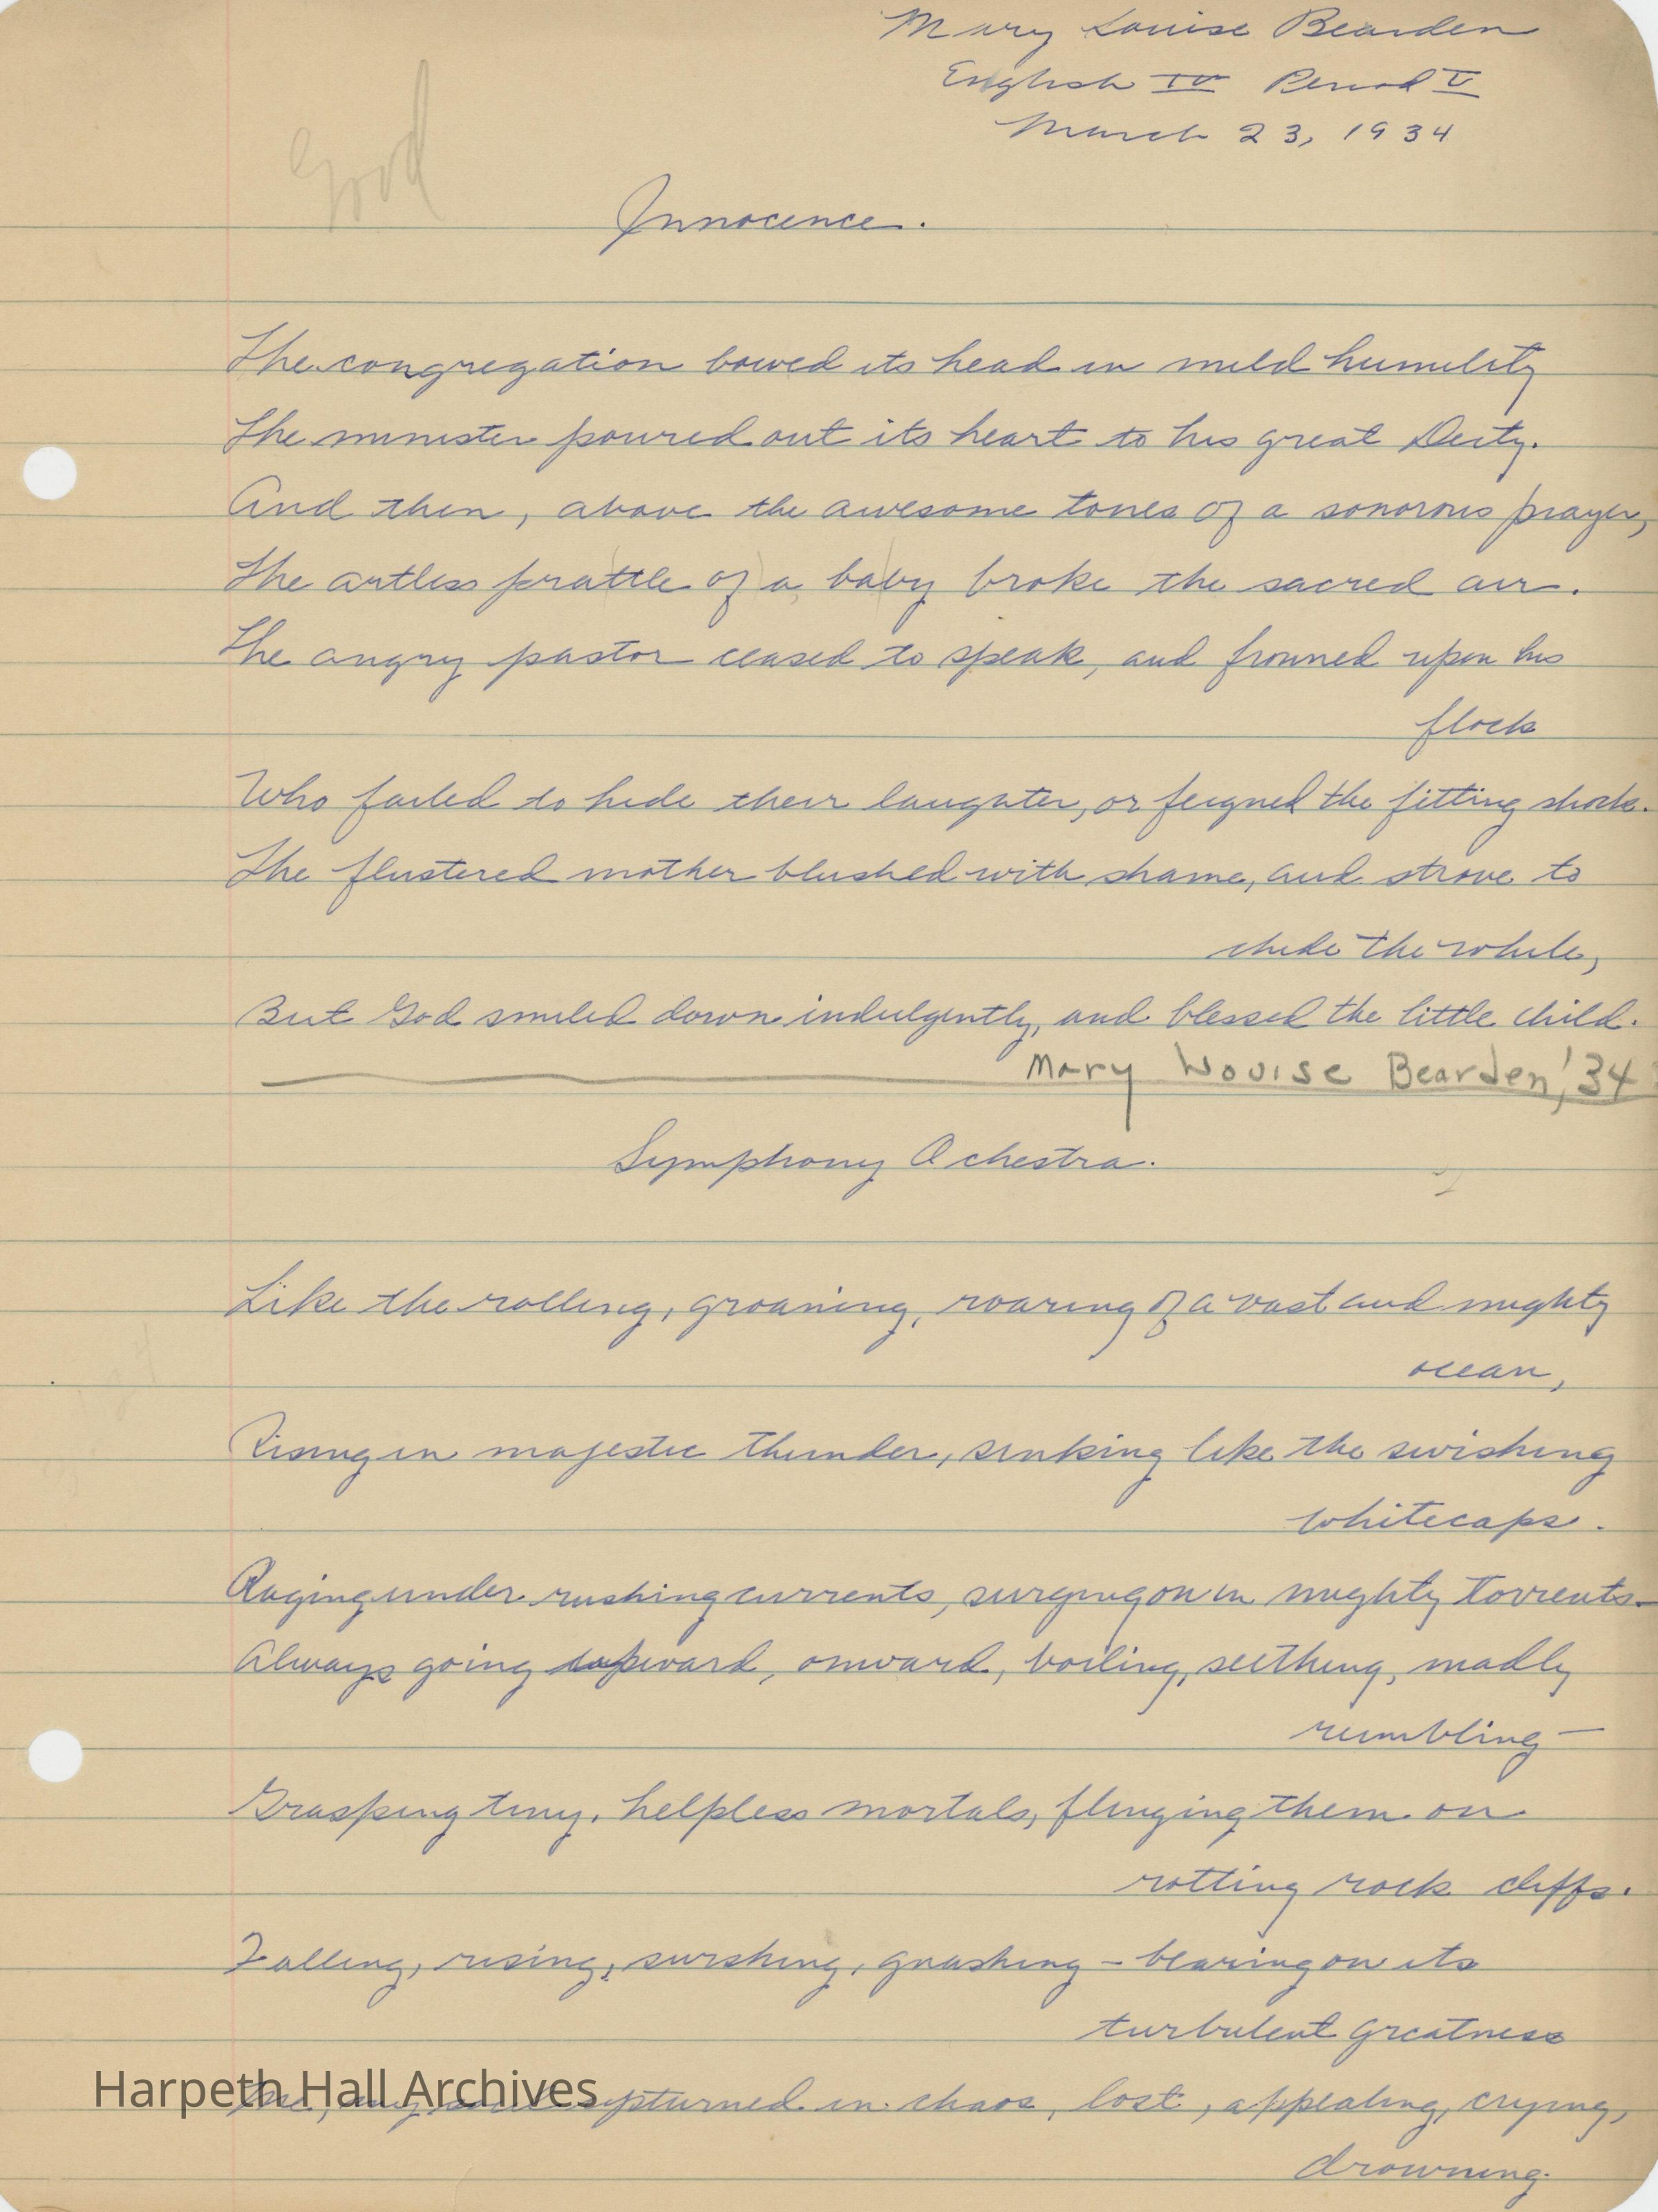 Mary Louise Bearden
English IV Period V
March 23, 1934
Good
Innocence.
The congregation bowed its head in mild humility
The minister poured out its heart to his great Deity.
And then, above the awesome tones of a sonorous prayer,
The artless prattle of a baby broke the sacred air.
The angry pastor ceased to speak, and frowned upon his
flock
Who failed to hide their laughter, or feigned the fitting shock.
The flustered mother blushed with shame, and strove to
chide the while,
But God smiled down indulgently, and blessed the little child.
Mary Louise Bearden, '34
Symphony Ochestra.
Like the rolling, groaning, roaring of a vast and mighty
ocean,
Rising in majestic thunder, sinking like the swishing
whitecaps.
Raging under rushing currents, surging on in mighty torrents—
Always going upward, onward, boiling, seething, madly
rumbling—
Grasping tiny, helpless mortals, flinging them on
rotting rock cliffs.
Falling, rising, swishing, gnashing – bearing on its
turbulent greatness
Me, my soul upturned in chaos, lost, appealing, crying,
drowning.
Harpeth Hall Archives